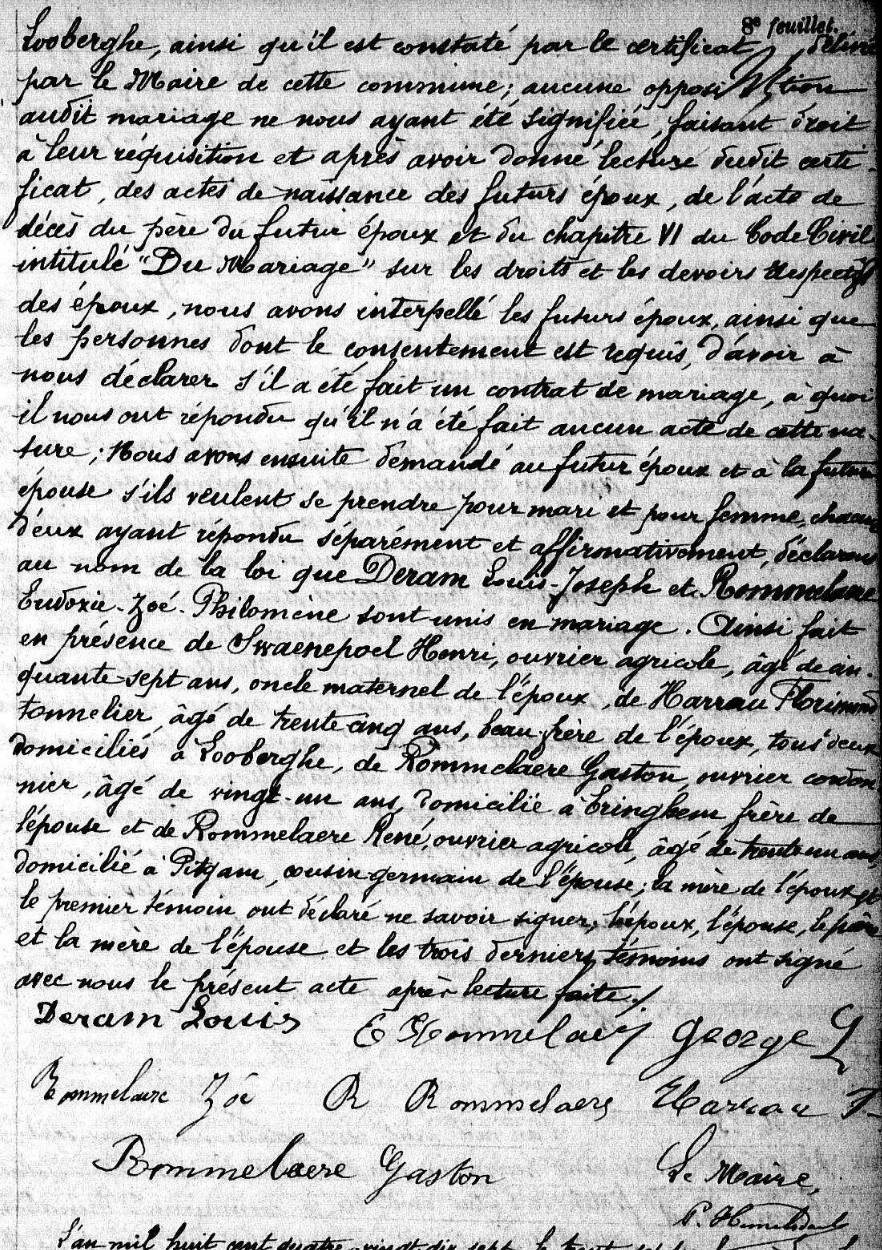 8e feuillet.
Looberghe, ainsi qu'il est constaté par le certificat délivré
par le Maire de cette commune; aucune opposition
audit mariage ne nous ayant été signifiée, faisant droit
à leur réquisition et après avoir donné lecture dudit certi-
ficat, des actes de naissance des futurs époux, de l'acte de
décès du père du futur époux et du chapitre VI du Code Civil
intitulé "Du Mariage" sur les droits et les devoirs respectifs
des époux, nous avons interpellé les futurs époux, ainsi que
les personnes dont le consentement est requis, d'avoir à
nous déclarer s'il a été fait un contrat de mariage, à quoi
il nous ont répondu qu'il n'a été fait aucun acte de cette na-
ture; Nous avons ensuite demandé au futur époux et à la future
épouse s'ils veulent se prendre pour mari et pour femme, chacun
d'eux ayant répondu séparément et affirmativement, déclarons
au nom de la loi que Deram Louis-Joseph et Rommelaere
Eudoxie-Zoé-Philomène sont unis en mariage. Ainsi fait
en présence de Swaenepoel Henri, ouvrier agricole, âgé de cin-
quante-sept ans, oncle maternel de l'époux, de Harrau Florimond
tonnelier, âgé de trente cinq ans, beau-frère de l'époux, tous deux
domiciliés à Looberghe, de Rommelaere Gaston, ouvrier cordon-
nier, âgé de vingt-un ans, domicilié à Eringhem frère de
l'épouse et de Rommelaere René, ouvrier agricole, âgé de trente un ans,
domicilié à Pitgam, cousin germain de l'épouse; la mère de l'époux et
le premier témoin ont déclaré ne savoir signer, l'époux, l'épouse, le père
et la mère de l'épouse et les trois derniers témoins ont signé
avec nous le présent acte après lecture faite./
Deram Louis
E Rommelaere George L
Rommelaere Zoé R Rommelaere Harrau F
Rommelaere Gaston Le Maire,
L'an mil huit cent quatre-vingt dix sept, le trente